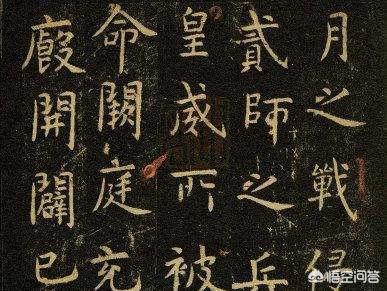 月之戰
貳師之兵
皇威所被
命闕庭充
廄開闢已
悟空问答